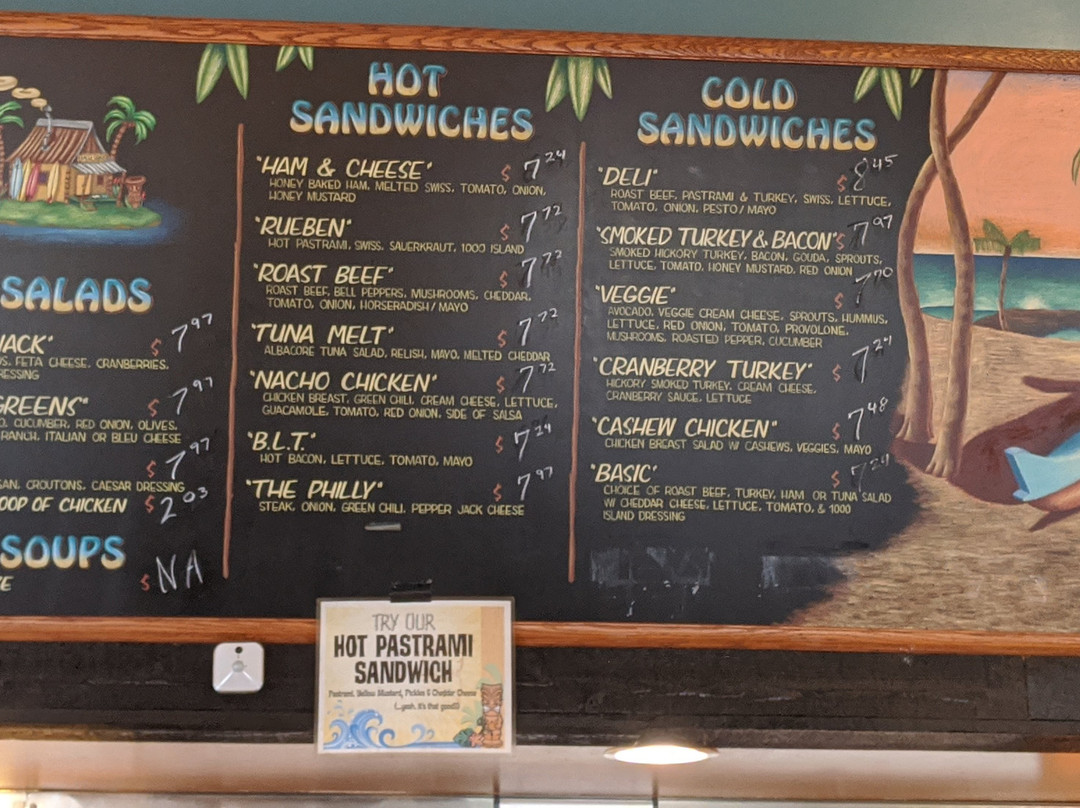 SALADS
JACK" $ 7 97
FETA CHEESE, CRANBERRIES,
RESSING
GREENS" $ 7 97
CUCUMBER, RED ONION, OLIVES,
RANCH, ITALIAN OR BLEU CHEESE
$ 7 97
SAN, CROUTONS, CAESAR DRESSING
OOP OF CHICKEN $ 2 03
SOUPS
$ NA
HOT
SANDWICHES
"HAM & CHEESE" $ 7 24
HONEY BAKED HAM, MELTED SWISS, TOMATO, ONION,
HONEY MUSTARD
"RUEBEN" $ 7 72
HOT PASTRAMI, SWISS, SAUERKRAUT, 1000 ISLAND
"ROAST BEEF" $ 7 72
ROAST BEEF, BELL PEPPERS, MUSHROOMS, CHEDDAR,
TOMATO, ONION, HORSERADISH/MAYO
"TUNA MELT" $ 7 72
ALBACORE TUNA SALAD, RELISH, MAYO, MELTED CHEDDAR
"NACHO CHICKEN" $ 7 72
CHICKEN BREAST, GREEN CHILI, CREAM CHEESE, LETTUCE,
GUACAMOLE, TOMATO, RED ONION, SIDE OF SALSA
"B.L.T." $ 7 24
HOT BACON, LETTUCE, TOMATO, MAYO
"THE PHILLY" $ 7 97
STEAK, ONION, GREEN CHILI, PEPPER JACK CHEESE
COLD
SANDWICHES
"DELI" $ 8 45
ROAST BEEF, PASTRAMI & TURKEY, SWISS, LETTUCE,
TOMATO, ONION, PESTO/MAYO
"SMOKED TURKEY & BACON" $ 7 97
SMOKED HICKORY TURKEY, BACON, GOUDA, SPROUTS,
LETTUCE, TOMATO, HONEY MUSTARD, RED ONION
"VEGGIE" $ 7 70
AVOCADO, VEGGIE CREAM CHEESE, SPROUTS, HUMMUS,
LETTUCE, RED ONION, TOMATO, PROVOLONE,
MUSHROOMS, ROASTED PEPPER, CUCUMBER
"CRANBERRY TURKEY" $ 7 24
HICKORY SMOKED TURKEY, CREAM CHEESE,
CRANBERRY SAUCE, LETTUCE
"CASHEW CHICKEN" $ 7 48
CHICKEN BREAST SALAD W/ CASHEWS, VEGGIES, MAYO
"BASIC" $ 7 24
CHOICE OF ROAST BEEF, TURKEY, HAM OR TUNA SALAD
W/ CHEDDAR CHEESE, LETTUCE, TOMATO, & 1000
ISLAND DRESSING
TRY OUR
HOT PASTRAMI
SANDWICH
Pastrami, Yellow Mustard, Pickles & Cheddar Cheese
(...yeah, it's that good!)